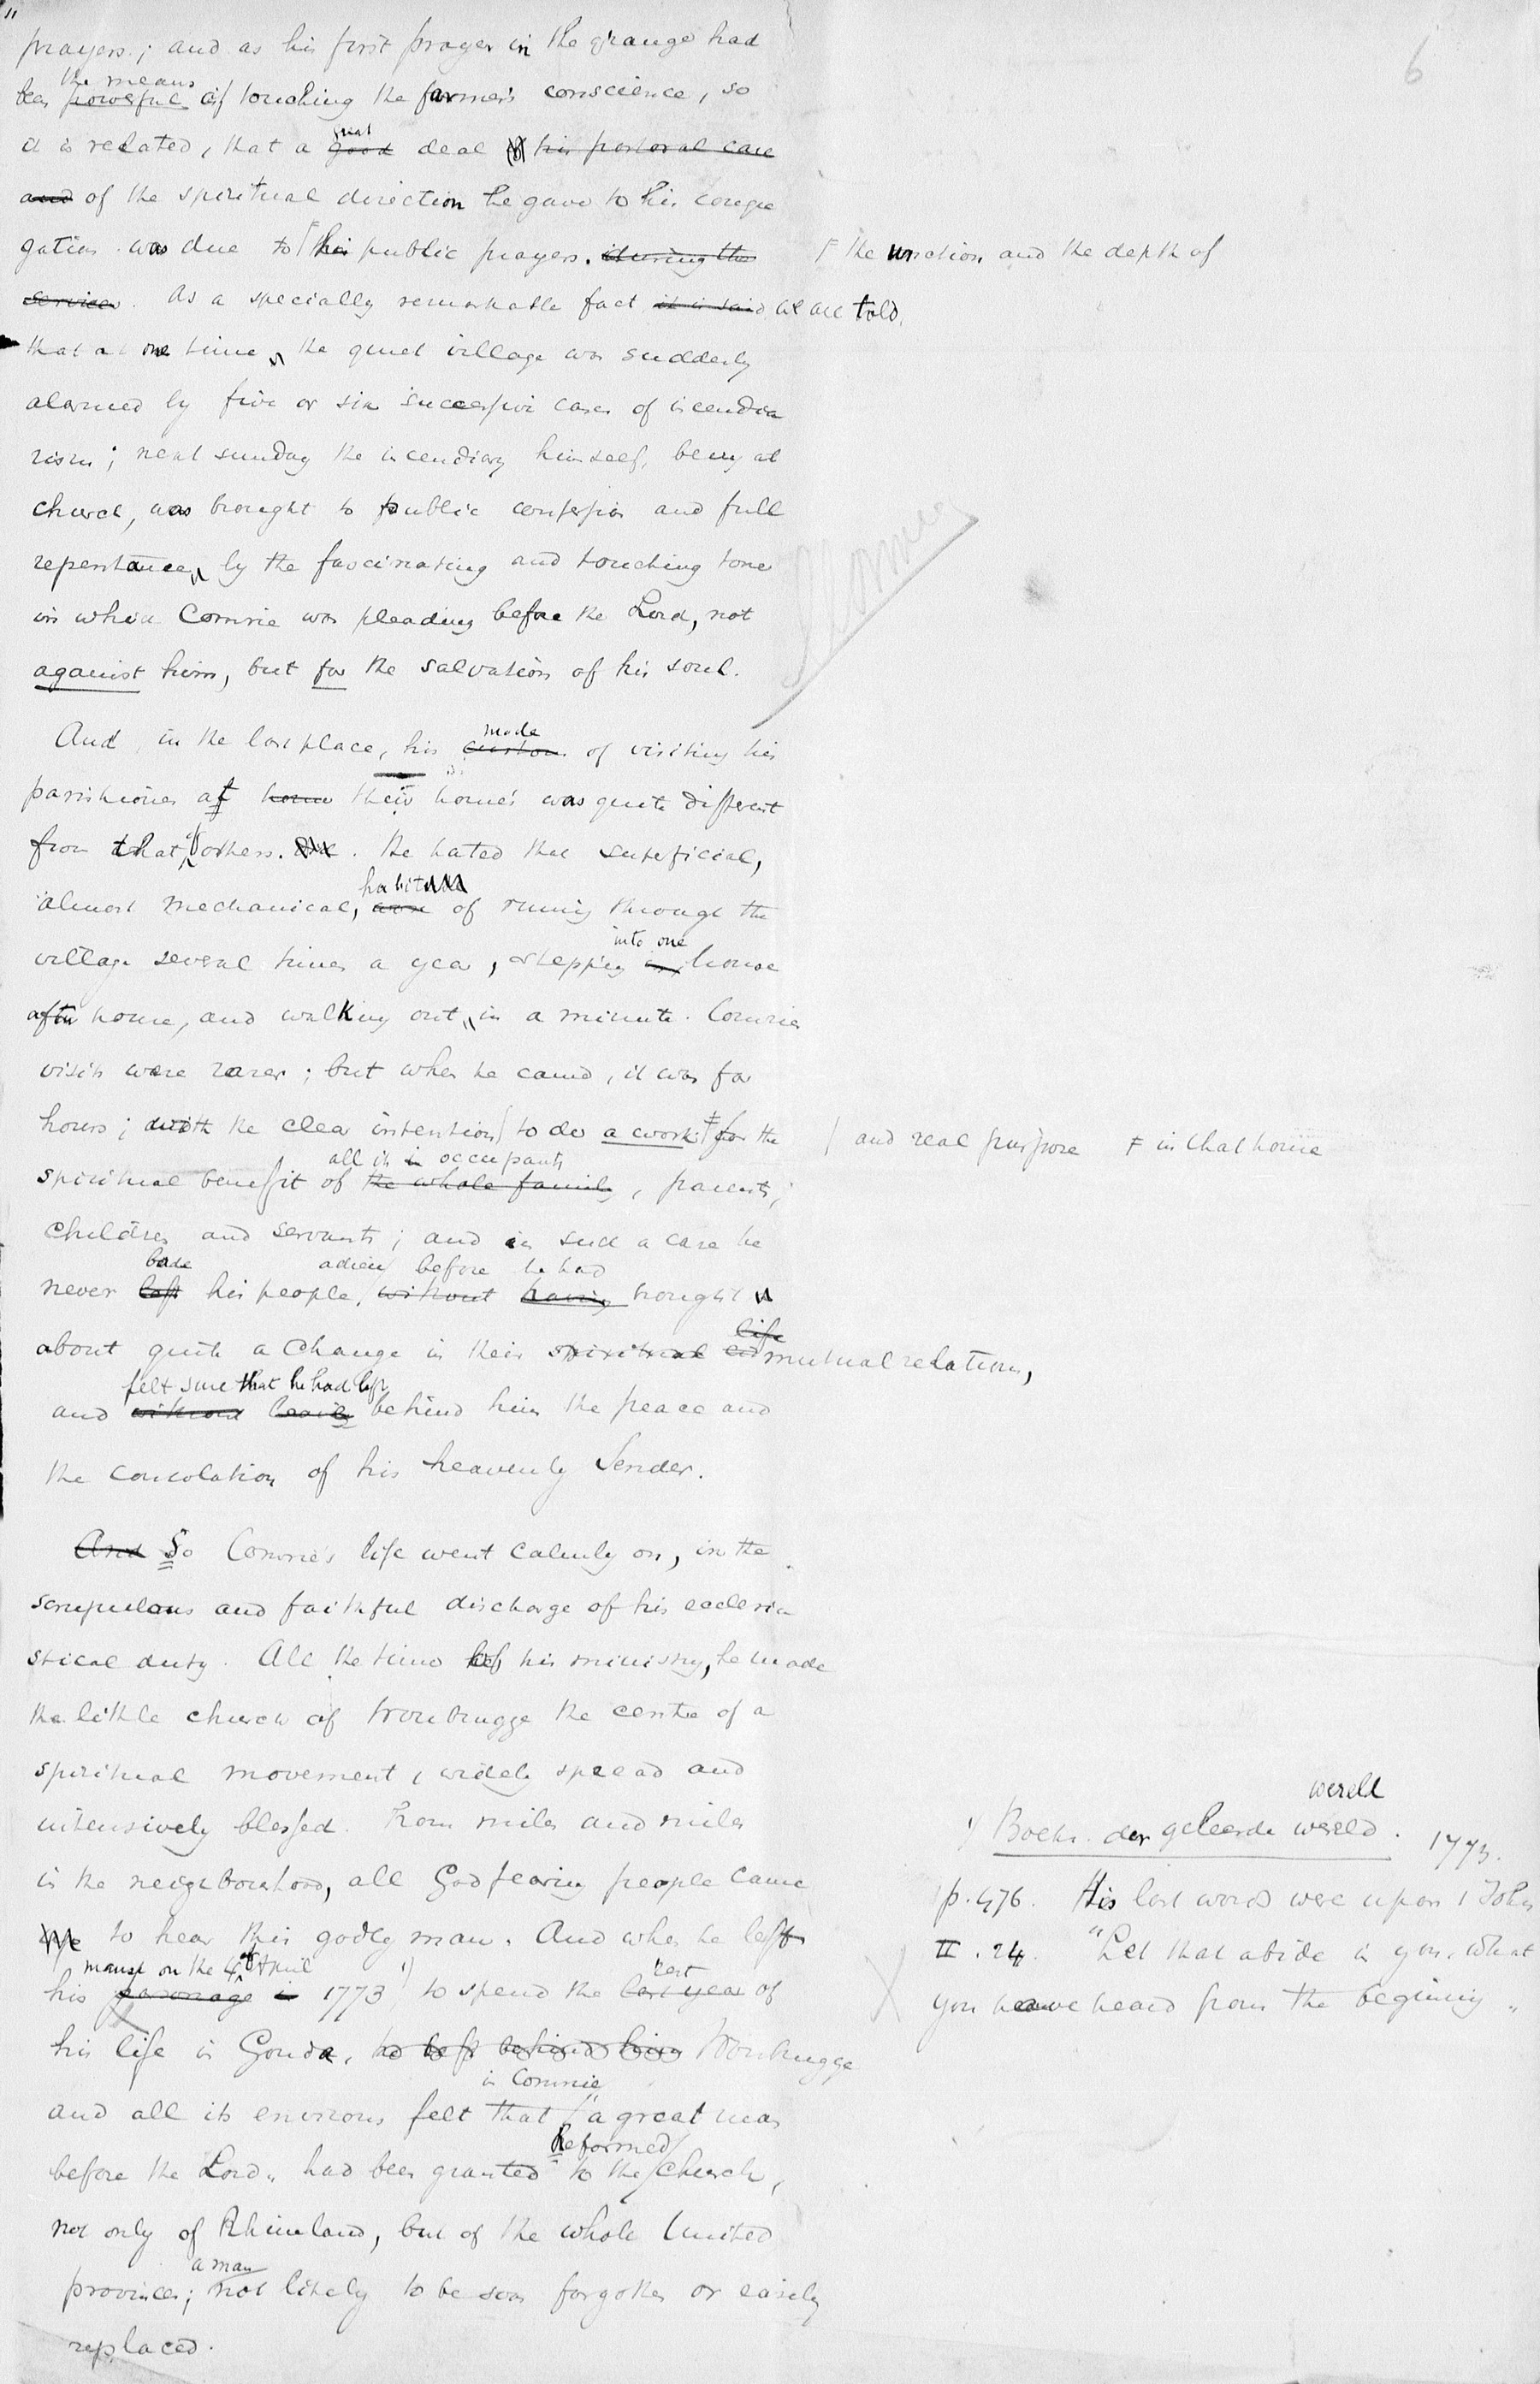 6
prayers; and as his first prayer in the grange had
the means
been powerful of touching the farmer's conscience, so
great
it is related, that a good deal of his pastoral care
and of the spiritual direction he gave to his congre
gation was due to his public prayers. during the
the unction and the depth of
services. As a specially remarkable fact it is said we are told,
that at one time, the quiet village was suddenly
alarmed by five or six successive cases of incendia
rism; next sunday the incendiary himself, being at
church, was brought to public confession and full
repentance, by the fascinating and touching tone
in which Comrie was pleading before the Lord, not
against him, but for the salvation of his soul.
Comrie
mode
And, in the last place, his custom of visiting his
parishioners at home their homes was quite different
of
from that others. He hated that superficial,
habit
almost mechanical, of runing through the
into one
village several times a year, stepping in house
after house, and walking out, in a minute. Comries
visits were rarer; but when he came, it was for
hours; with the clear intention to do a work for the
and real purpose in that house
all its occupants
spiritual benefit of the whole family, parents,
children and servants; and in such a case he
bade adieu before he had
never left his people, without having brought
life
about quite a change in their spiritual mutual relations,
felt sure that he had left
and without leaving behind him the peace and
the consolation of his heavenly Sender.
And So Comrie's life went calmly on, in the
scrupulous and faithful discharge of his ecclesia
stical duty. All the time of his ministry, he made
the little church of Woubrugge the centre of a
spiritual movement, widely spread and
intensively blessed. From miles and miles
in the neighbourhood, all Godfearing people came
to hear this godly man. And when he left
manse on the 4 of April rest
his parsonage in 1773 1) to spend the last year of
his life in Gouda, he left behind him Woubrugge
in Comrie
and all its environs felt that "a great man
Reformed
before the Lord" had been granted to the Church,
not only of Rhineland, but of the whole United
a man
provinces; not likely to be soon forgotten or easily
replaced.
wereld
1) Boekz. der geleerde wereld. 1773.
p. 476. His last words were upon 1 John
II. 24. "Let that abide in you, what
you have heard from the beginning"